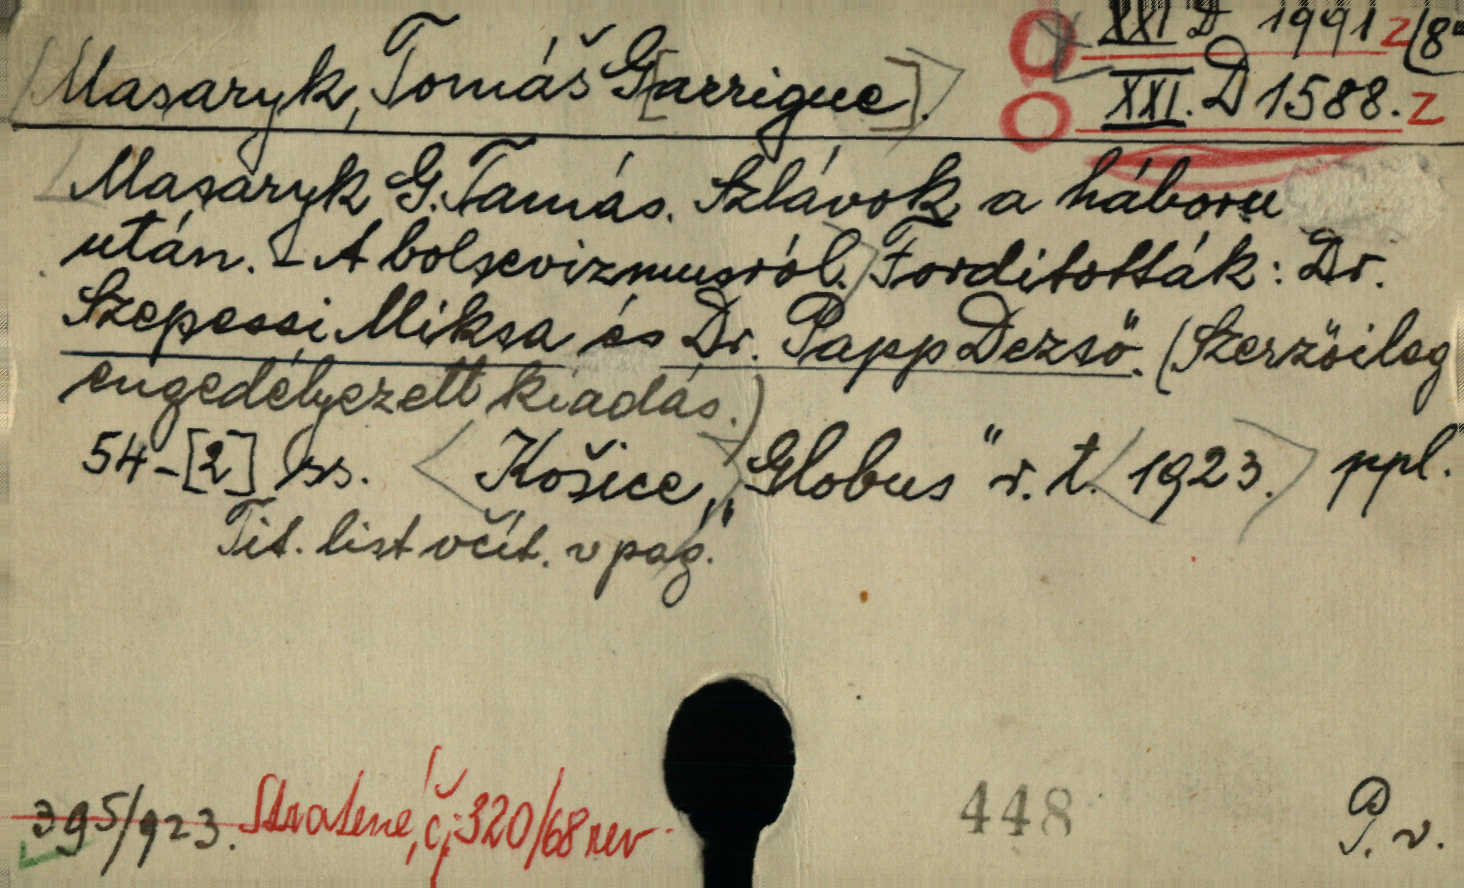 XXI D 1991 z (8°
Masaryk, Tomáš G[arrigue].
XXI. D 1588. z
Masaryk G. Tamás. Szlávok a háboru
után. - A bolsevizmusról. Forditották: Dr.
Szepessi Miksa és Dr. Papp Dezső. (Szerzőileg
engedélyezett kiadás.)
54-[2] ss. Košice, "Globus" r. t. 1923. ppl.
Tit. list včít. v pag.
395/923. Stratené, č. 320/68 rev.
448
P. v.